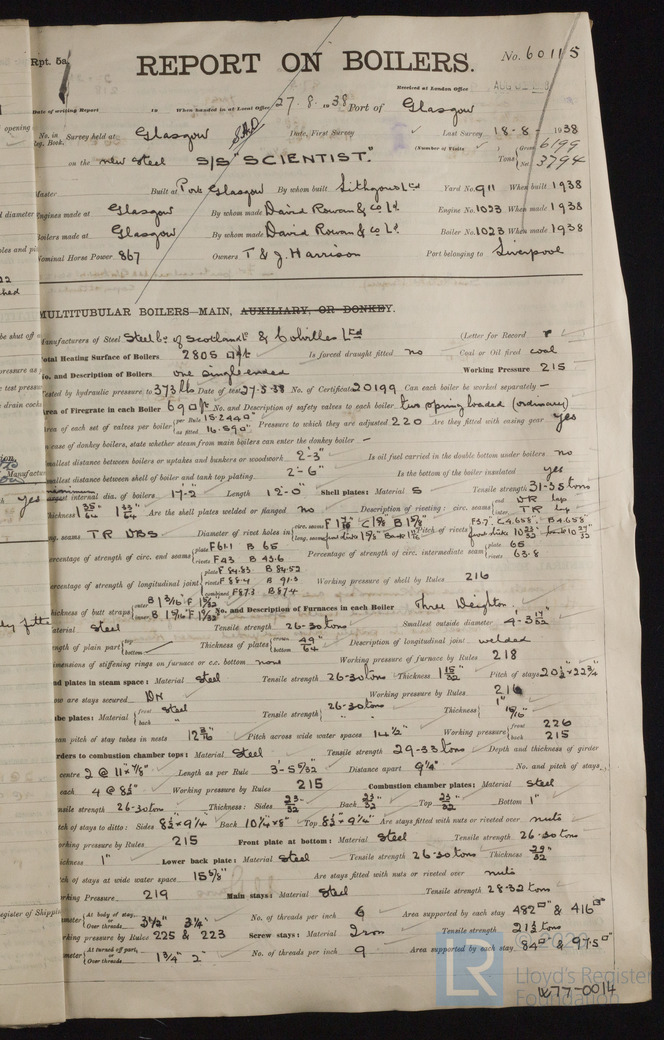 Rpt. 5a
REPORT ON BOILERS.
No. 60115
Received at London Office
Date of writing Report
When handed in at Local Office 27. 8. 1938 Port of Glasgow
No. in Survey held at Glasgow Date, First Survey Last Survey 18-8-1938
Reg. Book.
(Number of Visits) Gross 6199
on the new Steel S/S "SCIENTIST." Tons Net 3794
Master Built at Port Glasgow By whom built Lithgows Ltd Yard No. 911 When built 1938
Engines made at Glasgow By whom made David Rowan & Co Ld Engine No. 1023 When made 1938
Boilers made at Glasgow By whom made David Rowan & Co Ld. Boiler No. 1023 When made 1938
Nominal Horse Power 867 Owners T & J. Harrison Port belonging to Liverpool
MULTITUBULAR BOILERS—MAIN, AUXILIARY, OR DONKEY.
Manufacturers of Steel Steel Co. of Scotland Ld & Colvilles Ltd (Letter for Record r)
Total Heating Surface of Boilers 2805 Is forced draught fitted no Coal or Oil fired coal
No. and Description of Boilers one single-ended Working Pressure 215
Tested by hydraulic pressure to 373 lbs Date of test 27-5-38 No. of Certificate 20199 Can each boiler be worked separately —
Area of Firegrate in each Boiler 69 No. and Description of safety valves to each boiler two spring loaded (ordinary)
Area of each set of valves per boiler per Rule 15.2440" as fitted 16.590" Pressure to which they are adjusted 220 Are they fitted with easing gear yes
In case of donkey boilers, state whether steam from main boilers can enter the donkey boiler —
Smallest distance between boilers or uptakes and bunkers or woodwork 2'-3" Is oil fuel carried in the double bottom under boilers no
Smallest distance between shell of boiler and tank top plating 2'-6" Is the bottom of the boiler insulated yes
Largest internal dia. of boilers 17'-2" Length 12'-0" Shell plates: Material S Tensile strength 31-35 tons
Thickness 1 35/64 1 33/64 Are the shell plates welded or flanged no Description of riveting: circ. seams end DR lap inter TR lap
long. seams TR DBS Diameter of rivet holes in circ. seams F 1 7/16 C 1 5/8 B 1 5/8 Pitch of rivets F 3.7" C 4.658" B 4.658"
Percentage of strength of circ. end seams plate F 61.1 B 65 rivets F 43 B 43.6 Percentage of strength of circ. intermediate seam plate 65 rivets 63.8
Percentage of strength of longitudinal joint plate F 84.83 B 84.52 rivets F 88.4 B 91.3 combined F 87.3 B 87.4 Working pressure of shell by Rules 216
Thickness of butt straps outer B 1 3/16 F 1 5/32 No. and Description of Furnaces in each Boiler Three Deighton
Material Steel Tensile strength 26-30 tons Smallest outside diameter 4'-3 17/32
Length of plain part top bottom Thickness of plates crown bottom 49"/64 Description of longitudinal joint welded
Dimensions of stiffening rings on furnace or c.c. bottom none Working pressure of furnace by Rules 218
End plates in steam space: Material Steel Tensile strength 26-30 tons Thickness 1 15/32 Pitch of stays 20 1/2" x 22 3/4"
How are stays secured DN Working pressure by Rules 216
Tube plates: Material front back Steel " Tensile strength 26-30 tons " Thickness 1" 15/16"
Mean pitch of stay tubes in nests 12 3/16" Pitch across wide water spaces 14 1/2" Working pressure front 226 back 215
Girders to combustion chamber tops: Material Steel Tensile strength 29-33 tons Depth and thickness of girder
centre 2 @ 11" x 7/8" Length as per Rule 3'-5 5/32" Distance apart 9 1/4" No. and pitch of stays
each 4 @ 8 1/2" Working pressure by Rules 215 Combustion chamber plates: Material Steel
Tensile strength 26-30 tons Thickness: Sides 23/32 Back 23/32 Top 23/32 Bottom 1"
Pitch of stays to ditto: Sides 8 1/2" x 9 1/4" Back 10 1/4" x 8" Top 8 1/2" x 9 1/4" Are stays fitted with nuts or riveted over nuts
Working pressure by Rules 215 Front plate at bottom: Material Steel Tensile strength 26-30 tons
Thickness 1" Lower back plate: Material Steel Tensile strength 26-30 tons Thickness 29/32
Pitch of stays at wide water space 15 5/8" Are stays fitted with nuts or riveted over nuts
Working Pressure 219 Main stays: Material Steel Tensile strength 28-32 tons
Diameter At body of stay, or Over threads 3 1/2" 3 1/4" No. of threads per inch 6 Area supported by each stay 482 & 416
Working pressure by Rules 225 & 223 Screw stays: Material Iron Tensile strength 21 1/2 tons
Diameter At turned off part, or Over threads 1 3/4" 2" No. of threads per inch 9 Area supported by each stay 84 & 97.5
LR
© 2020
Lloyd's Register
Foundation
W77-0014